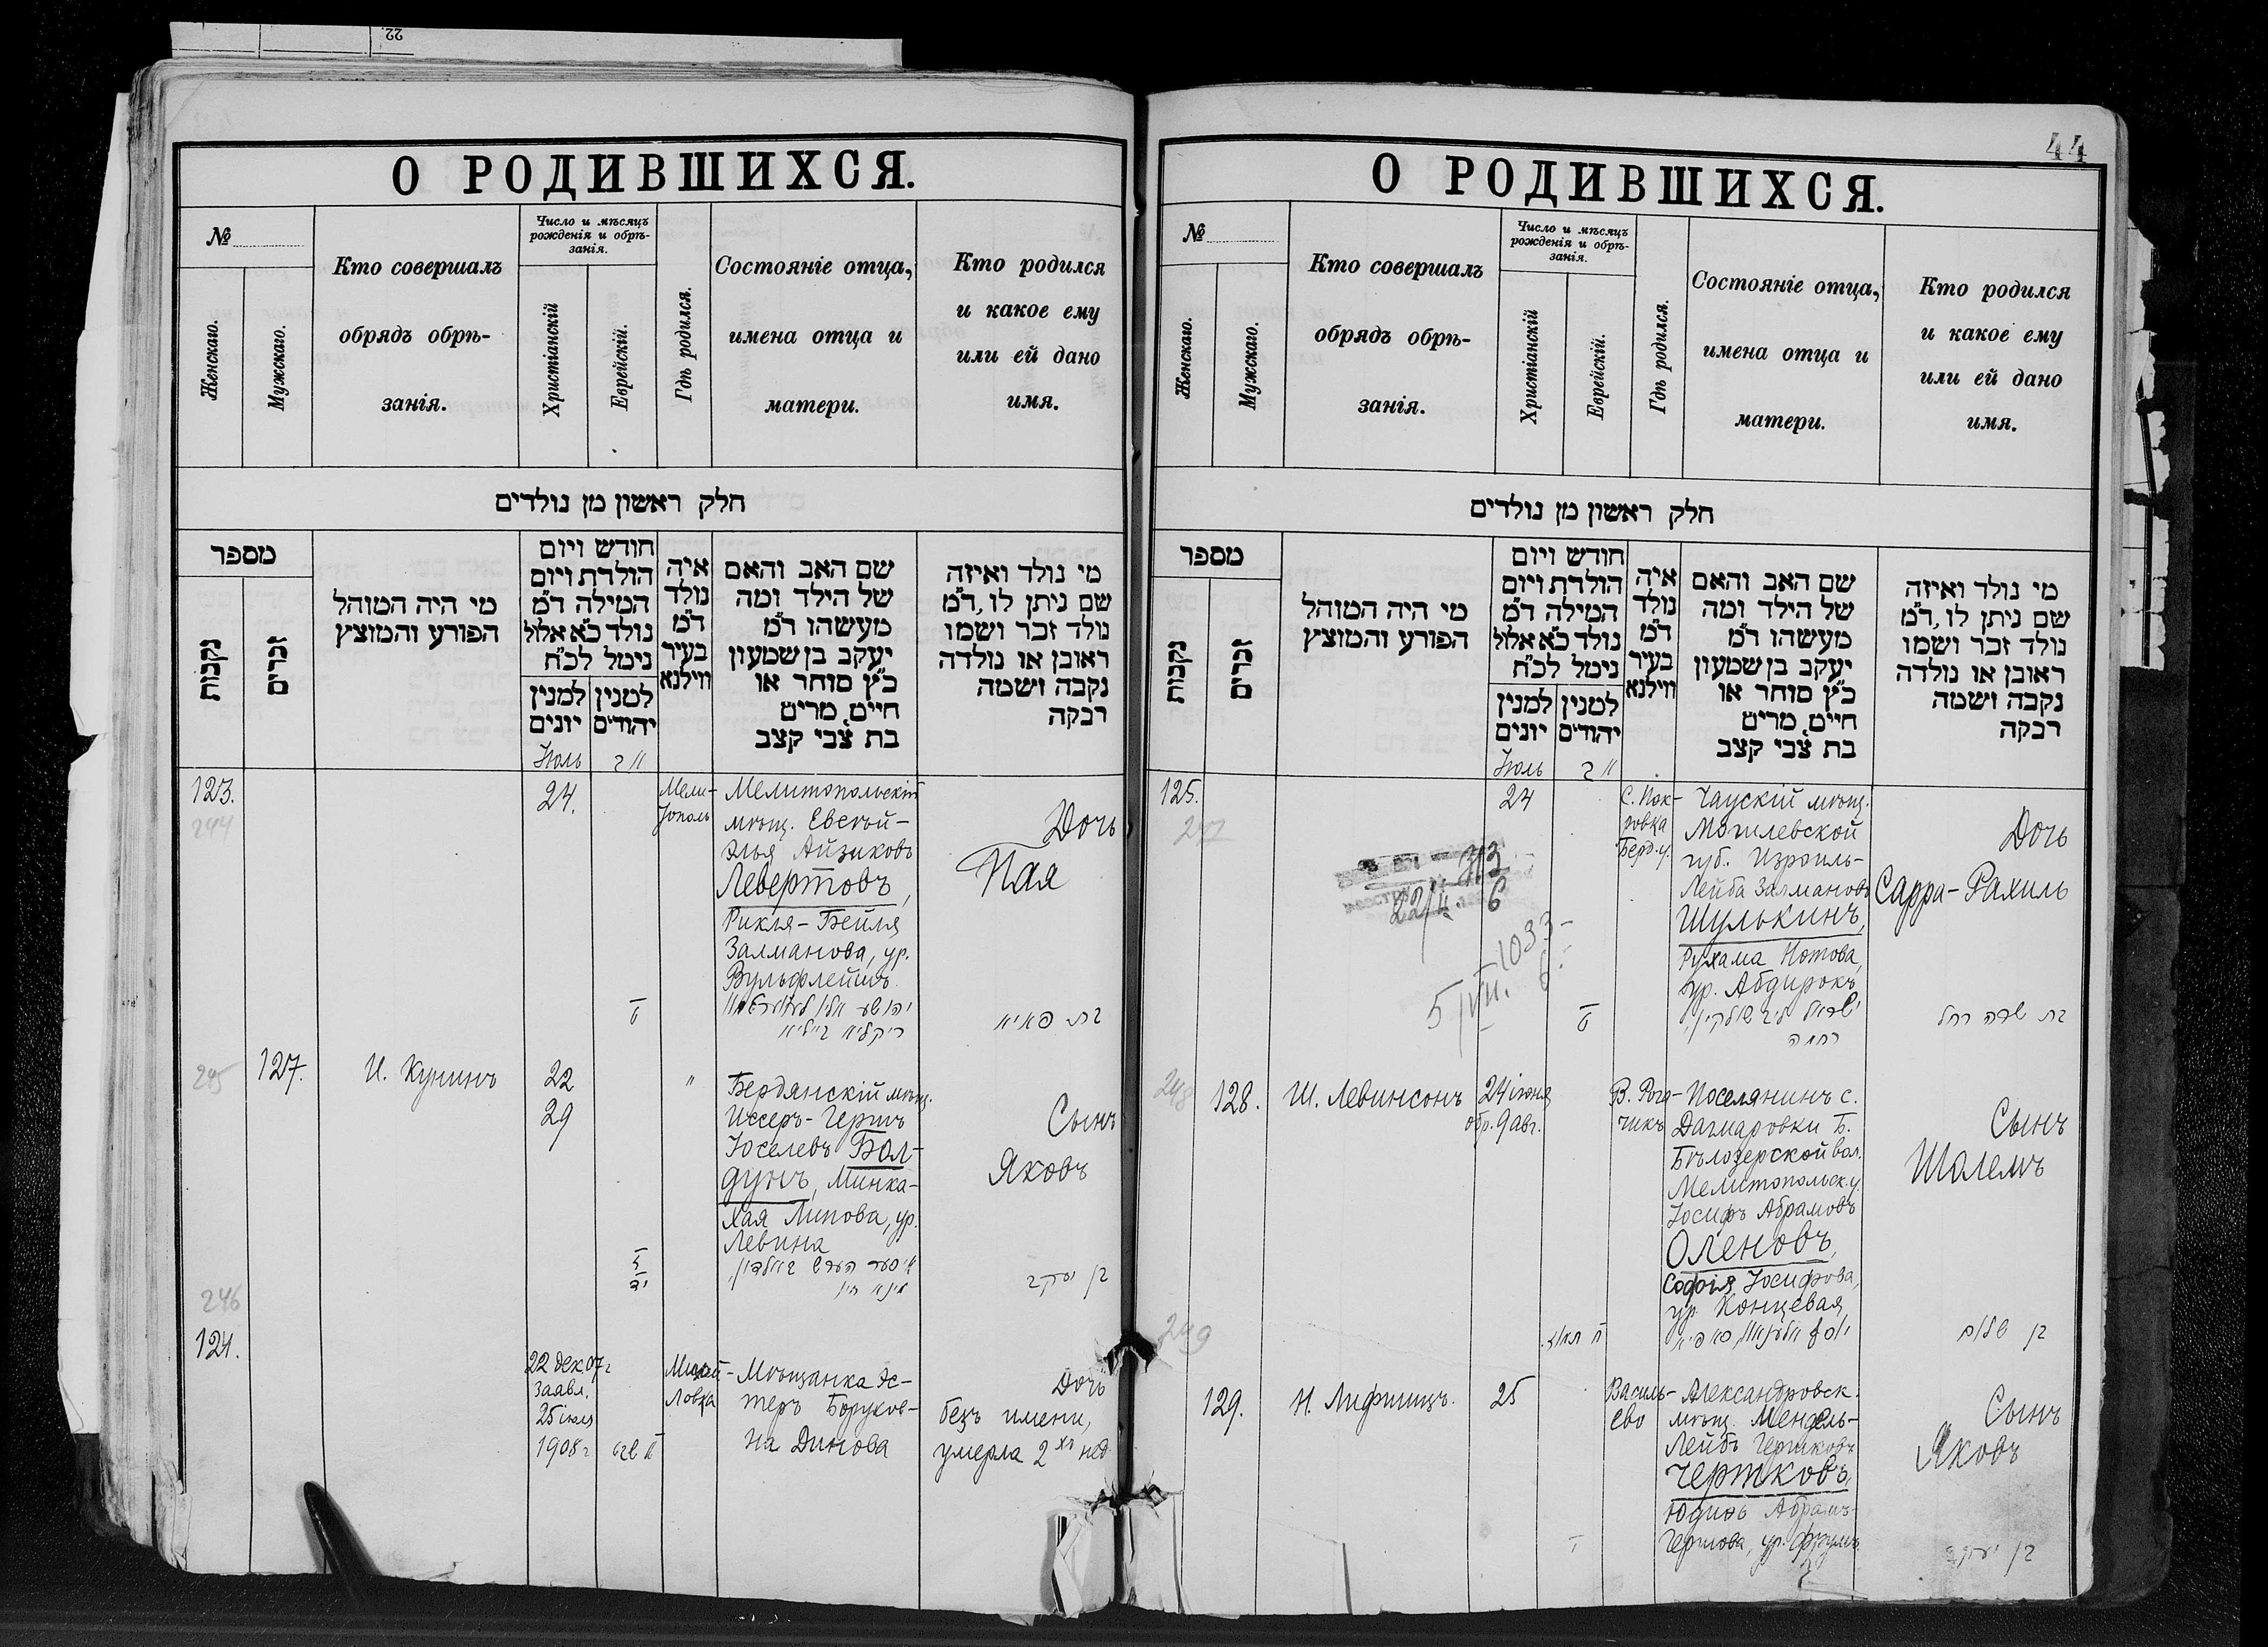 22.
О РОДИВШИХСЯ.
№
Женскаго.
Мужскаго.
Кто совершалъ
обрядъ обрѣ-
занія.
Число и мѣсяцъ
рожденія и обрѣ-
занія.
Христіанскій
Еврейскій.
Гдѣ родился.
Состояніе отца,
имена отца и
матери.
Кто родился
и какое ему
или ей дано
имя.
חלק ראשון מן נולדים
מספר
נקבות
זכרים
מי היה המוהל
הפורע והמוצץ
חודש ויום
הולדת ויום
המילה ד״מ
נולד כ״א אלול
נימל לכ״ח
למנין
יונים
למנין
יהודים
איה
נולד
ד״מ
בעיר
ווילנא
שם האב והאם
של הילד ומה
מעשהו ד״מ
יעקב בן שמעון
כ״ץ סוחר או
חיים, מרים
בת צבי קצב
מי נולד ואיזה
שם ניתן לו, ד״מ
נולד זכר ושמו
ראובן או נולדה
נקבה ושמה
רבקה
Іюль
123.
244
24.
Мели-
тополь
Мелитопольскій
мѣщ. Евсѣй-
Элья Айзиковъ
Левертовъ,
Рикля-Бейля
Залманова, ур.
Вульфлейшъ.
ריקליא ביילא
Дочь
Пая
בת פאיא
245
127.
И. Кунинъ
22
29
"
Бердянскій мѣщ.
Иссеръ-Гершъ
Іоселевъ Бол-
дунъ, Минка-
Хая Липова, ур.
Левина
Сынъ
Яковъ
בן יעקב
246
124.
22 дек. 07 г
заявл.
25 іюля
1908 г
Михай-
ловка
Мѣщанка Эс-
теръ Борухов-
на Динова
Дочь
безъ имени,
умерла 2хъ нед.
44
О РОДИВШИХСЯ.
№
Женскаго.
Мужскаго.
Кто совершалъ
обрядъ обрѣ-
занія.
Число и мѣсяцъ
рожденія и обрѣ-
занія.
Христіанскій
Еврейскій.
Гдѣ родился.
Состояніе отца,
имена отца и
матери.
Кто родился
и какое ему
или ей дано
имя.
חלק ראשון מן נולדים
מספר
נקבות
זכרים
מי היה המוהל
הפורע והמוצץ
חודש ויום
הולדת ויום
המילה ד״מ
נולד כ״א אלול
נימל לכ״ח
למנין
יונים
למנין
יהודים
איה
נולד
ד״מ
בעיר
ווילנא
שם האב והאם
של הילד ומה
מעשהו ד״מ
יעקב בן שמעון
כ״ץ סוחר או
חיים, מרים
בת צבי קצב
מי נולד ואיזה
שם ניתן לו, ד״מ
נולד זכר ושמו
ראובן או נולדה
נקבה ושמה
רבקה
Іюль
125.
247
24
С. Пок-
ровка
Берд. у.
Чаускій мѣщ.
Могилевской
губ. Израиль-
Лейба Залмановъ
Шулькинъ,
Рухама Нотова,
ур. Абдирокъ
ישראל ליב שולקין,
רחמה
Дочь
Сарра-Рахиль
בת שרה רחל
248
128.
Ш. Левинсонъ
24 іюня
обр. 9 авг.
В. Рога-
чикъ
Поселянинъ с.
Дагмаровки Б.
Бѣлозерской вол.
Мелитопольск. у.
Іосифъ Абрамовъ
Оленовъ,
Софія Іосифова,
ур. Концевая
Сынъ
Шолемъ
בן שלום
249
129.
Н. Лифшицъ.
25
Василь-
ево
Александровск.
мѣщ. Мендель-
Лейбъ Гершковъ
Чертковъ,
Юдинь Абрамъ-
Гершова, ур. Фрумъ
Сынъ
Яковъ
בן יעקב